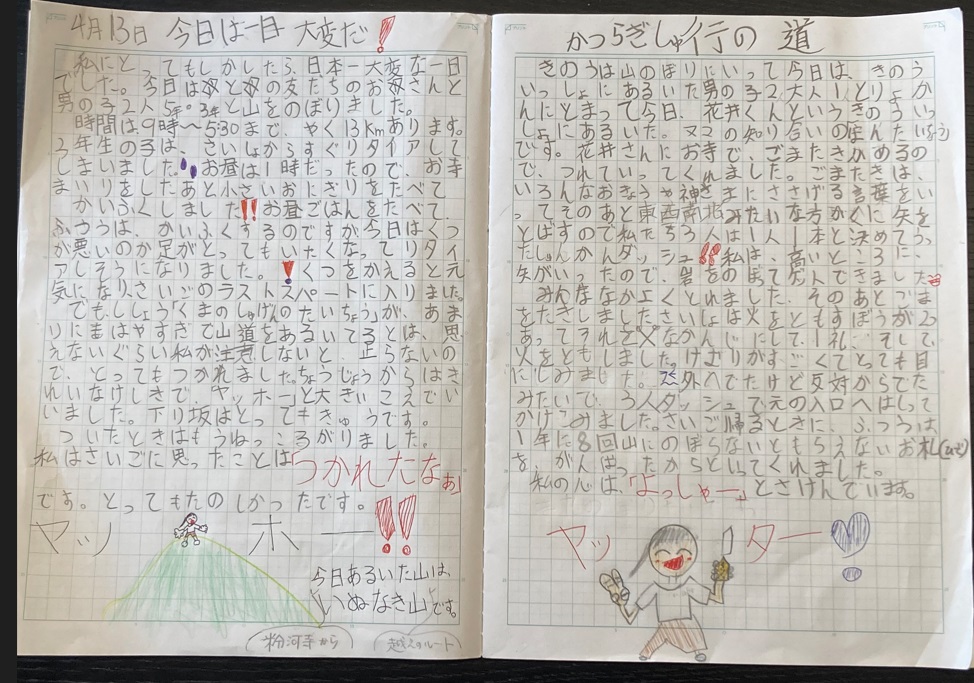 4月13日 今日は一日 大変だ!
私にとってもしかしたら、日本一大変な一日
でした。今日は父と父の友だちのお父さんと
男の子2人5年。3年と山をのぼりました。
時間は9時〜5:30まで、やく13kmあります。
2年生の子は、さいしょからすぐリタイアして
しまいました。お昼は1時だったので、お寺
まいりをしたあと小さいおにぎりをたべて
かいふくしました!!お昼ごはんをたべて、
ふつうは、かいふくするのですが今日はくつ
が悪いのか足がとってもいたくなってリタイ
アしそうになりました。!くつをかえると元
気になり、さいごのラストスパートに入りました。
でも、しょうくまのしゅげんのたいちょうが、あま
りにまはやすぎて山道をあるいてるとは、思
えないぐらい私が注意しないと、止らないの
で、とってもつかれました。ちょうじょうからはき
れいなけしきで、ヤッホーと大きいこえでい
いました。下り坂はとってもきゅうです。
ついたときはもうねっころがりました。
私はさいごに思ったことは「つかれたなぁ」
です。とってもたのしかったです。
ヤッホー!!
今日あるいた山は、
いぬなき山です。
粉河寺から
越えのルート
かつらぎしゅ行の道
きのうは山のぼりにいって今日は、きのう
いっしょにあるいた男の子2大人1とりょか
んにとまって今日、花井くんというきのういっ
しょにあるいた。ママの知り合いのぼんたいちょう
です。花井さんにお寺で、ごまたきがあるの
で、つれていってくれました。ごまたきは、
いろんなおきょうや神さまにささげる言葉をい
ってそのあと東西南北みたいな方がくに矢を
とばすので私たち3人は1人1本と決めてうっ
たしゅんかんダッシュ!!私は、高いところに、
矢がいったので、岩をのぼってゲットできました
みんななかよくとれました。そのあとごま
をたきしました。さいしょは火をともすぼうが2つ
あってそれをXなかんじにして、1礼。そして、
火をともしました。けむりがすごくてとても目
にしみました。外へでたけど反対からでた
みたいで、3人ダッシュで元の入口へはしって
かけこみました。さいご帰るときに、ふつうは
1年に8回山にのぼらないともらえないお札(ふだ)
を、がんばったからといってくれました。
私の心は、「よっしゃー」とさけんでいます。
ヤッター